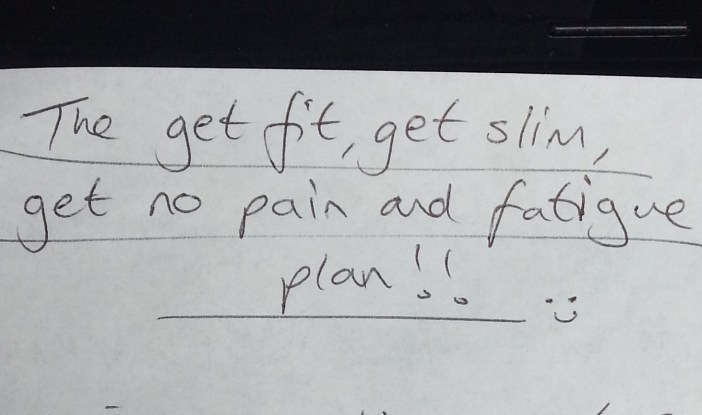 The get fit, get slim,
get no pain and fatigue
plan!! :)